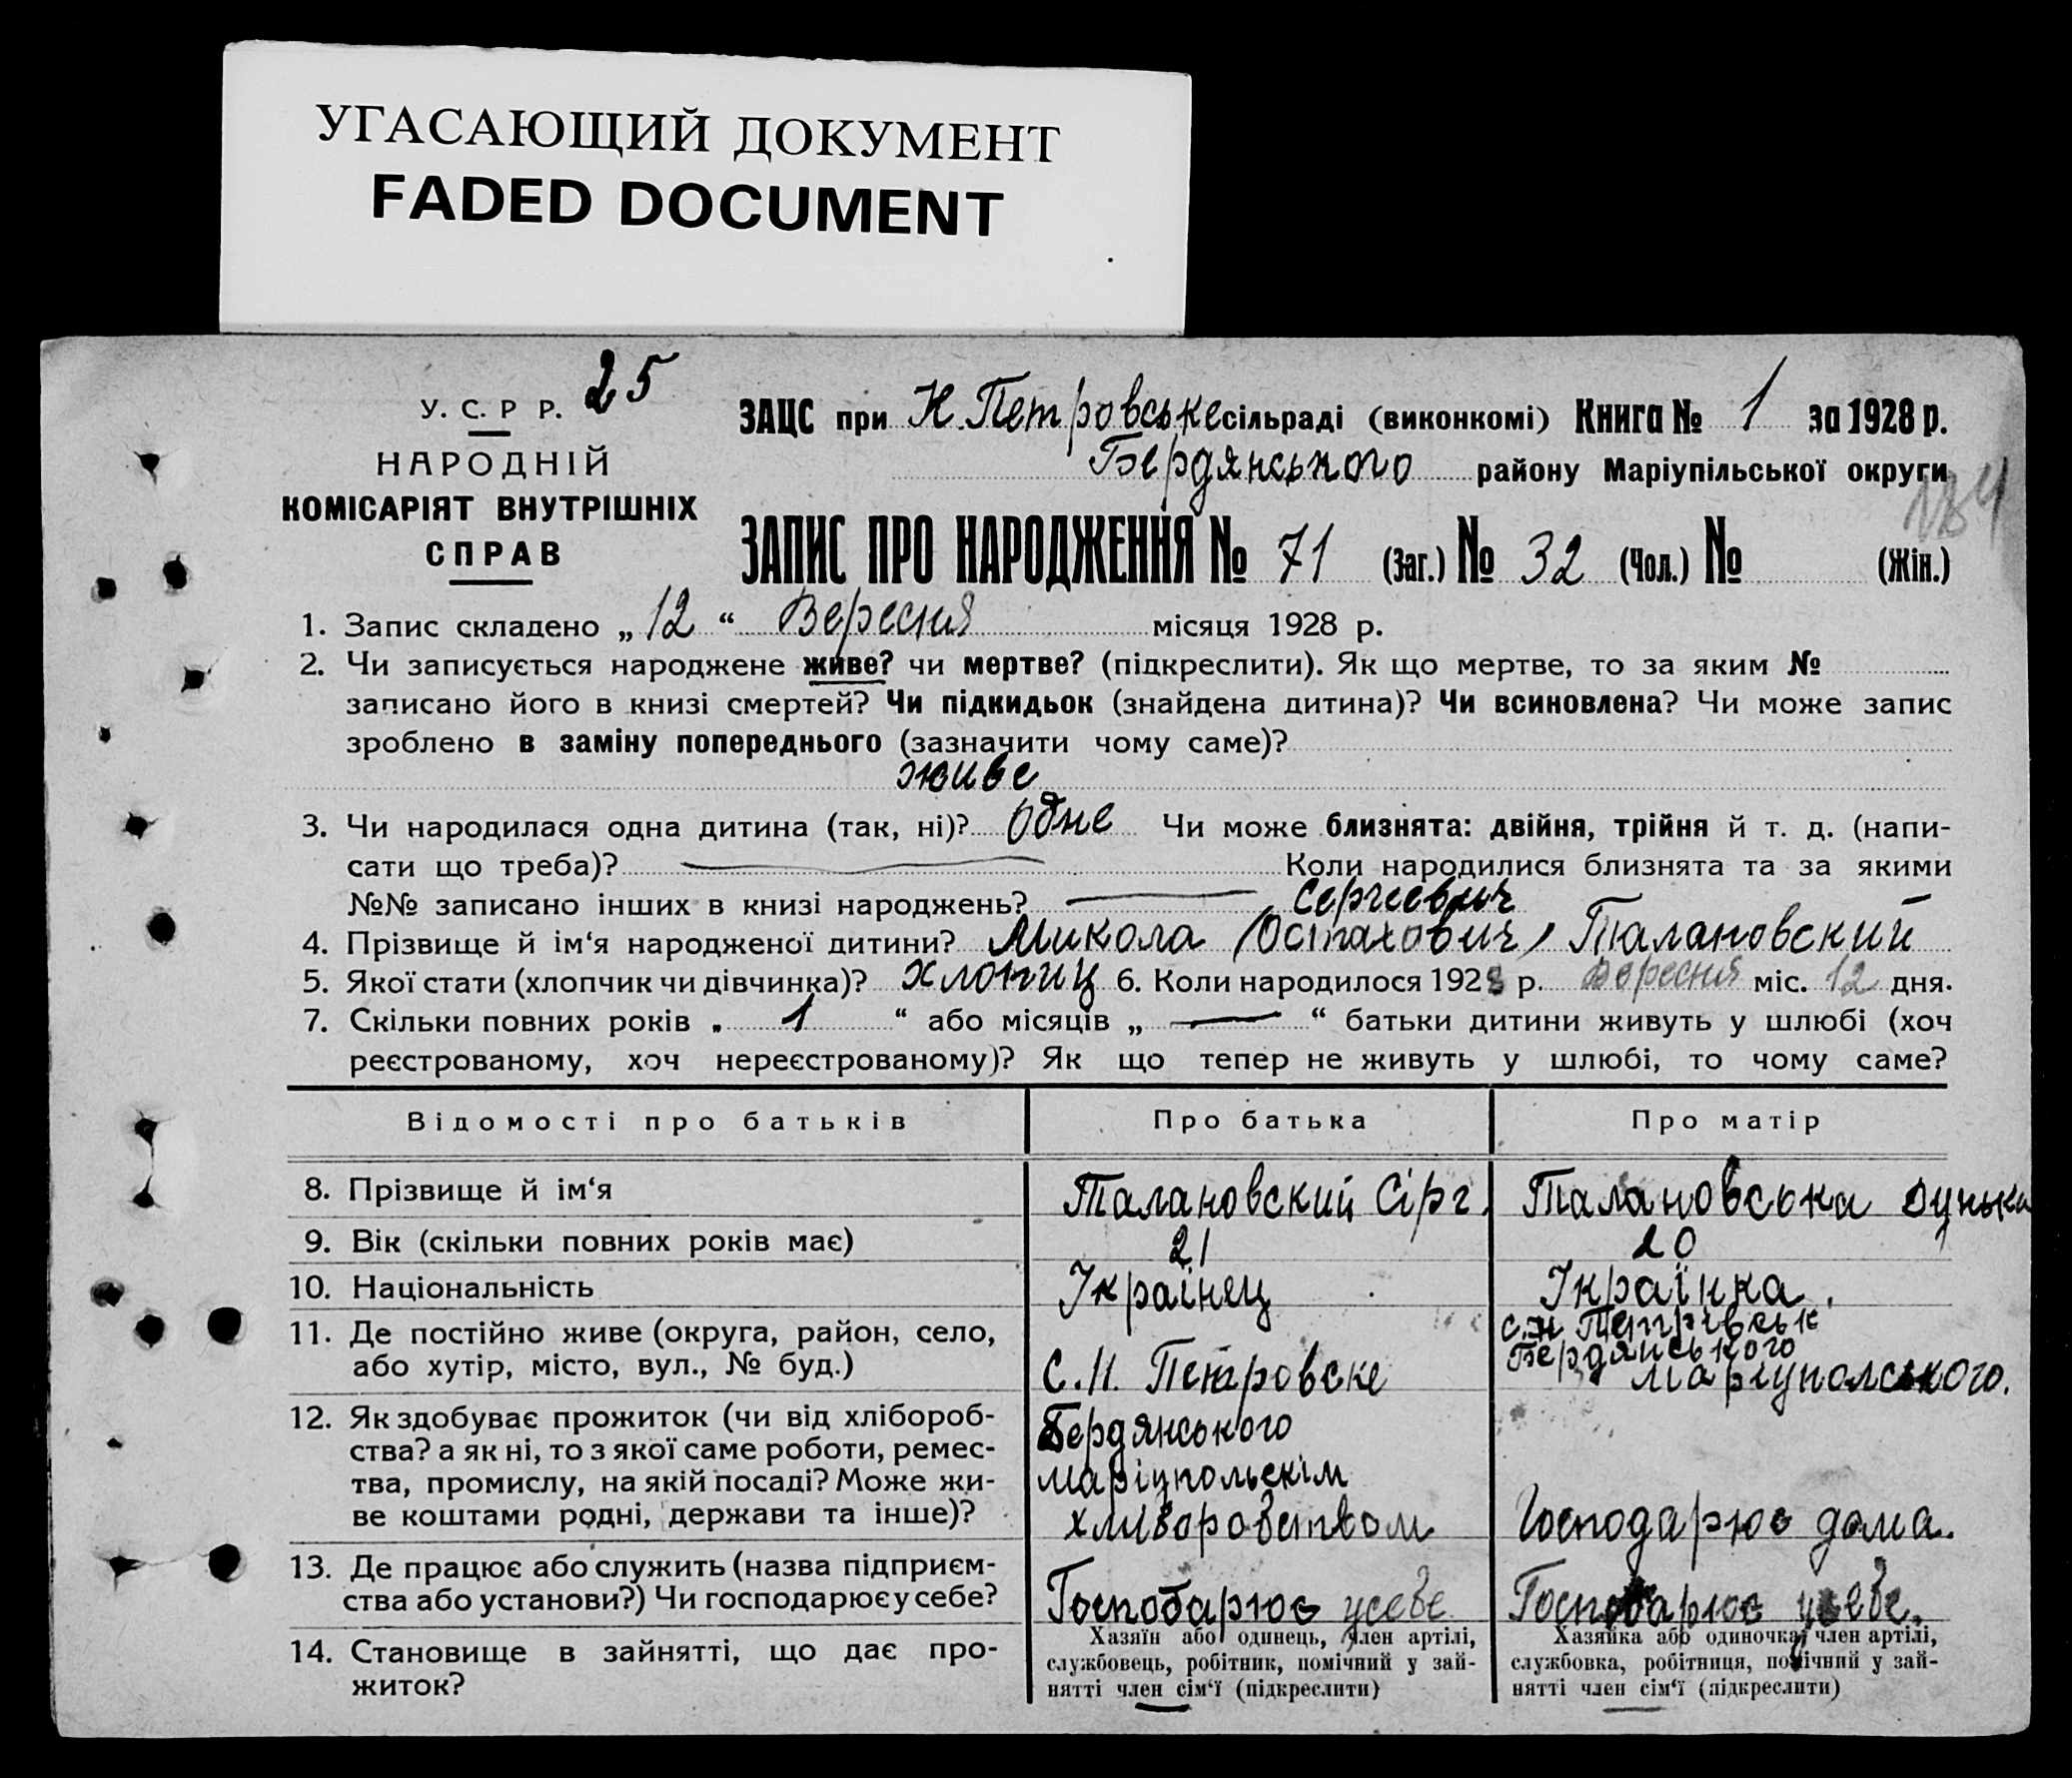 УГАСАЮЩИЙ ДОКУМЕНТ
FADED DOCUMENT
25
У. С. Р Р.
НАРОДНІЙ
КОМІСАРІЯТ ВНУТРІШНІХ
СПРАВ
ЗАЦС при Н. Петровське сільраді (виконкомі) Книга № 1 за 1928 р.
Бердянського району Маріупільської округи
ЗАПИС ПРО НАРОДЖЕННЯ № 71 (Заг.) № 32 (Чол.) № (Жін.)
1. Запис складено „12“ Вересня місяця 1928 р.
2. Чи записується народжене живе? чи мертве? (підкреслити). Як що мертве, то за яким №
записано його в книзі смертей? Чи підкидьок (знайдена дитина)? Чи всиновлена? Чи може запис
зроблено в заміну попереднього (зазначити чому саме)?
живе
3. Чи народилася одна дитина (так, ні)? Одне Чи може близнята: двійня, трійня й т. д. (напи-
сати що треба)? Коли народилися близнята та за якими
№№ записано інших в книзі народжень?
Сергеевич
4. Прізвище й ім‘я народженої дитини? Микола (Остахович) Талановский
5. Якої стати (хлопчик чи дівчинка)? хлопиц 6. Коли народилося 1928 р. Вересня міс. 12 дня.
7. Скільки повних років „ 1 “ або місяців „ — “ батьки дитини живуть у шлюбі (хоч
реєстрованому, хоч нереєстрованому)? Як що тепер не живуть у шлюбі, то чому саме?
Відомості про батьків Про батька Про матір
8. Прізвище й ім‘я Талановский Сірг. Талановська Дунька
9. Вік (скільки повних років має) 21 20
10. Національність Украінец Украінка.
11. Де постійно живе (округа, район, село,
або хутір, місто, вул., № буд.)
С. Н. Петровске
Бердянського
маріупольскім
с. н Петрівськ
Бердянського
Маріуполського.
12. Як здобуває прожиток (чи від хлібороб-
ства? а як ні, то з якої саме роботи, ремес-
тва, промислу, на якій посаді? Може жи-
ве коштами родні, держави та інше)?
хліборобством Господарює дома.
13. Де працює або служить (назва підприєм-
ства або установи?) Чи господарює у себе?
Господарює усебе Господарює усебе.
14. Становище в зайнятті, що дає про-
житок?
Хазяїн або одинець, член артілі,
службовець, робітник, помічний у зай-
нятті член сім‘ї (підкреслити)
Хазяйка або одиночка, член артілі,
службовка, робітниця, помічний у зай-
нятті член сім‘ї (підкреслити)